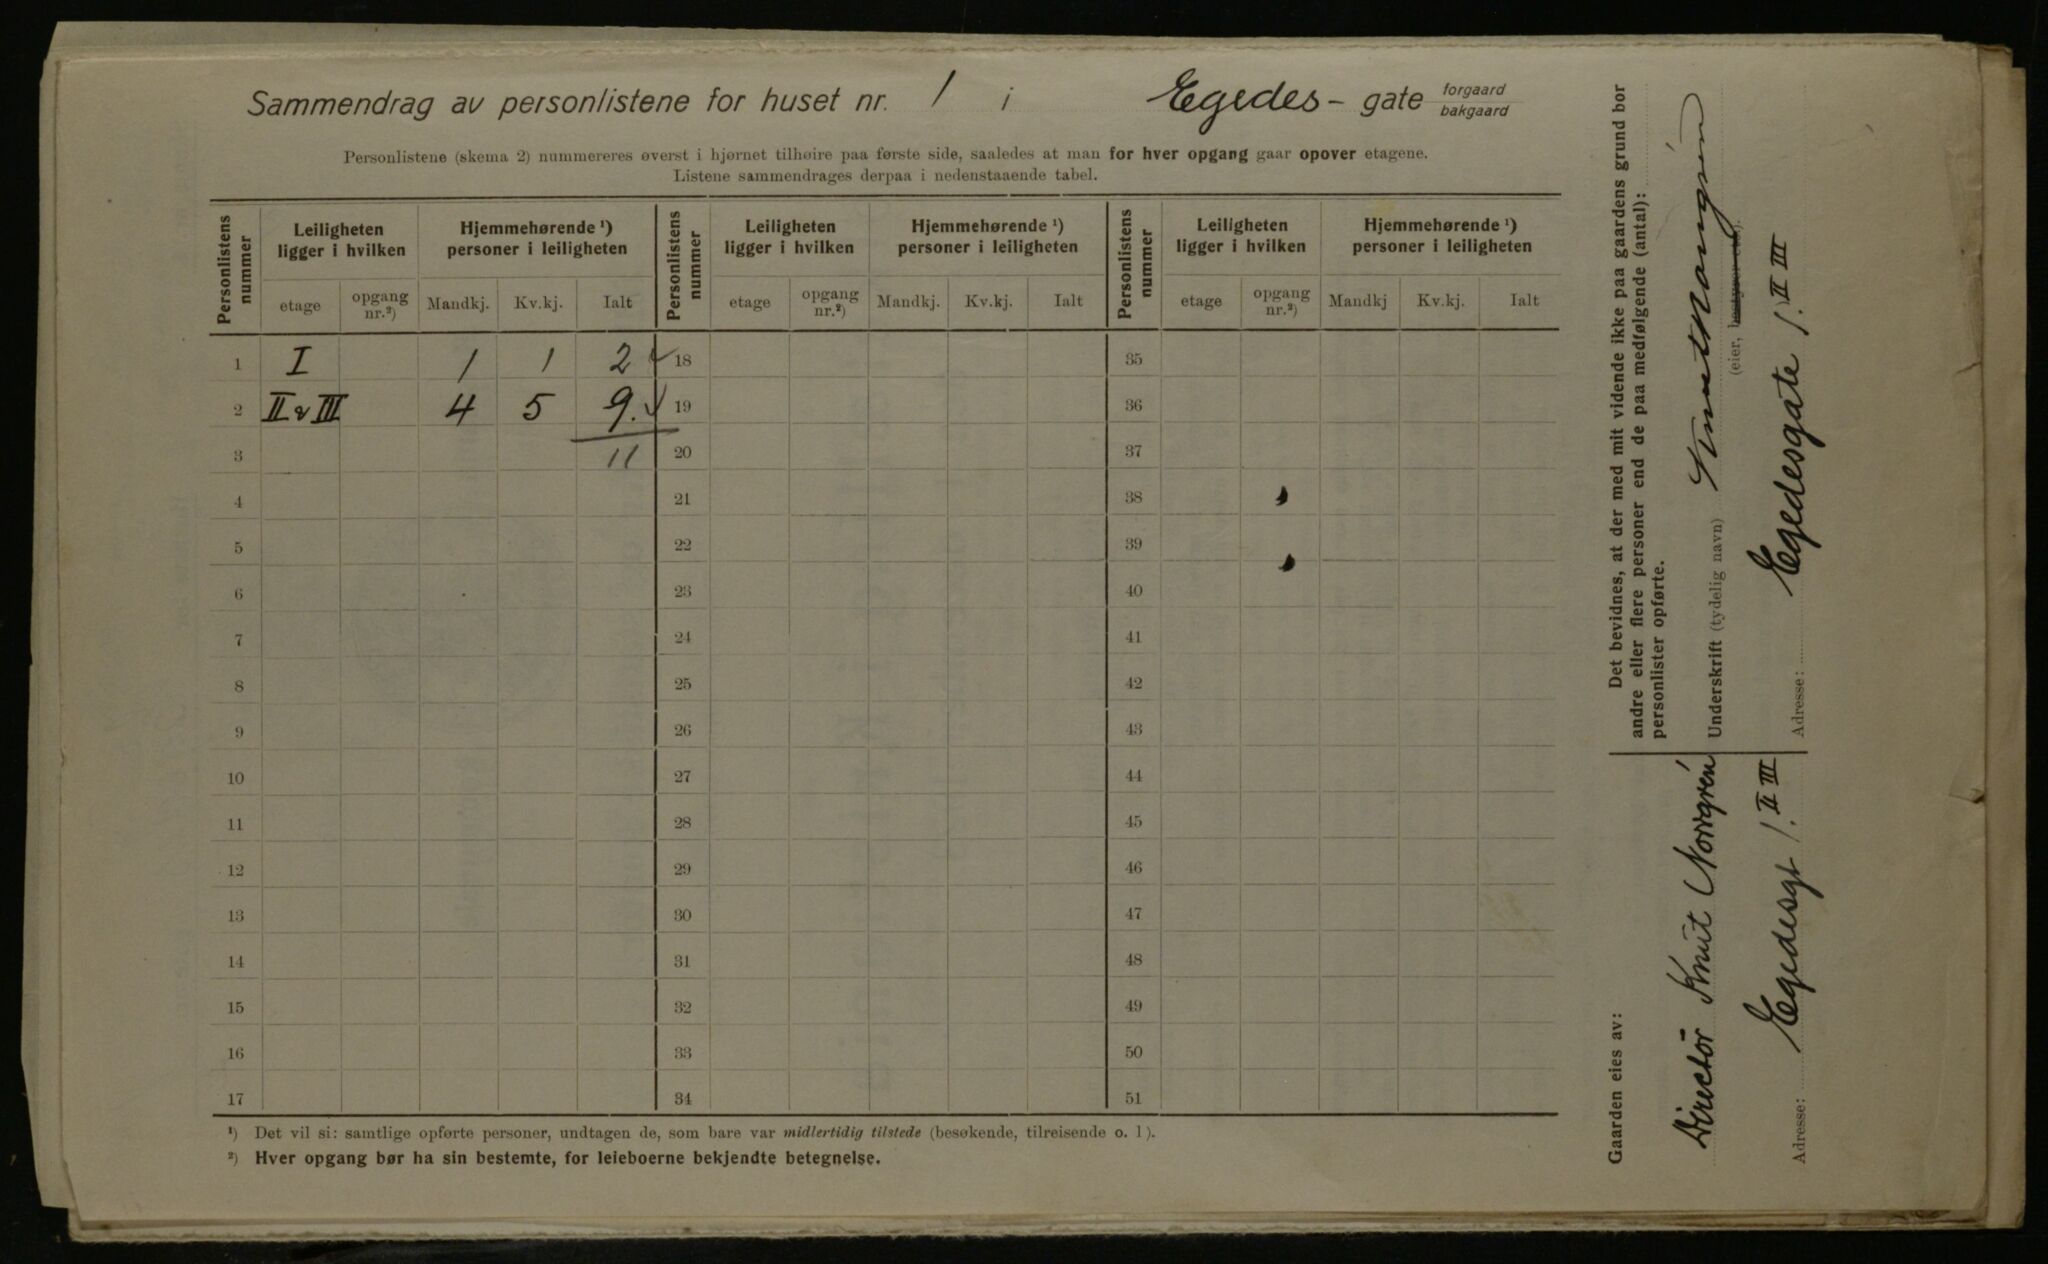 Sammendrag av personlistene for huset nr. 1 i Egedes- gate forgaard bakgaard
Personlistene (skema 2) nummereres øverst i hjørnet tilhøire paa første side, saaledes at man for hver opgang gaar opover etagene.
Listene sammendrages derpaa i nedenstaaende tabel.
Personlistens nummer Leiligheten ligger i hvilken Hjemmehørende ¹) personer i leiligheten Personlistens nummer Leiligheten ligger i hvilken Hjemmehørende ¹) personer i leiligheten Personlistens nummer Leiligheten ligger i hvilken Hjemmehørende ¹) personer i leiligheten
etage opgang nr.²) Mandkj. Kv.kj. Ialt etage opgang nr.²) Mandkj. Kv.kj. Ialt etage opgang nr.²) Mandkj Kv.kj. Ialt
1 I 1 1 2 ✓ 18 35
2 II & III 4 5 9. ✓ 19 36
3 11 20 37
4 21 38
5 22 39
6 23 40
7 24 41
8 25 42
9 26 43
10 27 44
11 28 45
12 29 46
13 30 47
14 31 48
15 32 49
16 33 50
17 34 51
¹) Det vil si: samtlige opførte personer, undtagen de, som bare var midlertidig tilstede (besøkende, tilreisende o. l).
²) Hver opgang bør ha sin bestemte, for leieboerne bekjendte betegnelse.
Det bevidnes, at der med mit vidende ikke paa gaardens grund bor
andre eller flere personer end de paa medfølgende (antal):
personlister opførte.
Underskrift (tydelig navn) Knut Norrgrén
(eier, bestyrer etc.).
Adresse: Egedesgate 1. II III
Gaarden eies av:
Direktör Knut Norrgrén
Adresse: Egedesgt 1. II III